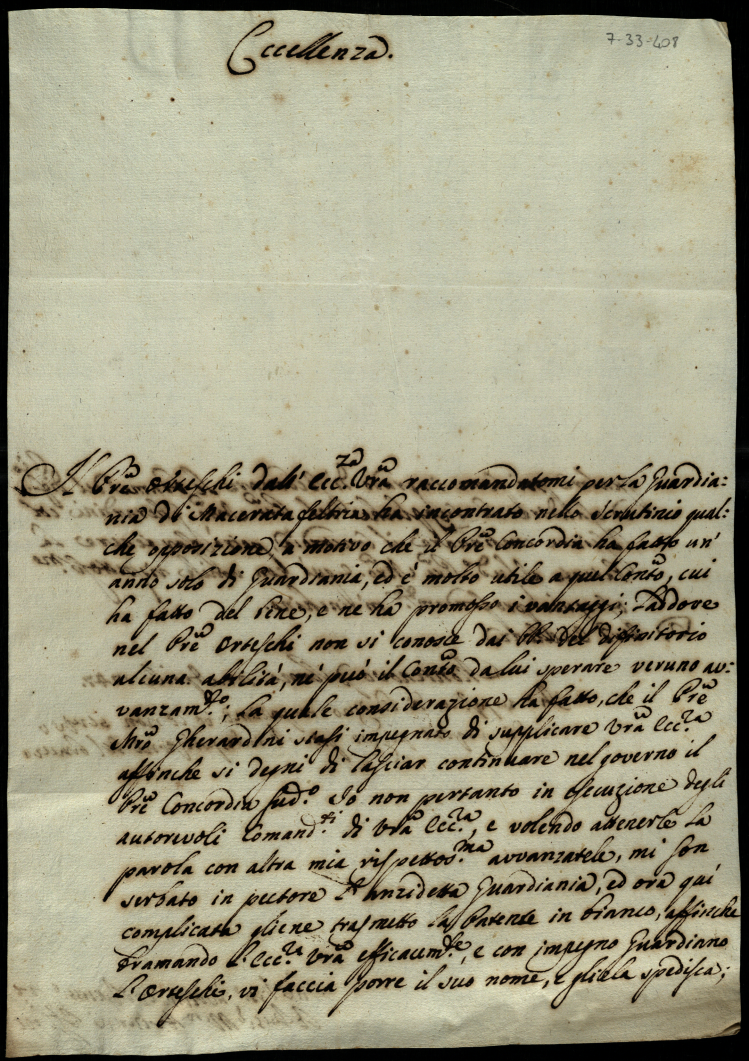 7-33-408
Eccellenza.
Il Prẽ Orteschi dall' Ecc.za Vrã raccomandatomi per la Guardia=
nia di Macerata feltria ha incontrato nello Scrutinio qual=
che opposizione, a motivo che il Prẽ Concordia ha fatto un'
anno solo di Guardiania, ed è molto utile a quel Conṽto, cui
ha fatto del bene, e ne ha promosso i vantaggi; Laddove
nel Prẽ Orteschi non si conosce dai PP. del Diffinitorio
alcuna abilità, nè può il Conṽto da lui sperare veruno av=
vanzam.to; la quale considerazione ha fatto, che il Prẽ
Mrõ Gherardini stassi impegnato di supplicare Vrã Ecc.za
affinche si degni di lasciar continuare nel governo il
Prẽ Concordia sud.o Io non pertanto in esecuzione degli
autorevoli Comand.ti di Vrã Ecc.za, e volendo attenerle la
parola con altra mia rispettos.ma avvanzatele, mi son
serbato in pectore l'anzidetta Guardiania, ed ora qui
complicata gliene trasmetto la Patente in bianco, affinche
bramando l'Ecc.za Vrã efficacem.te, e con impegno Guardiano
l'Orteschi, vi faccia porre il suo nome, e gliela spedisca;